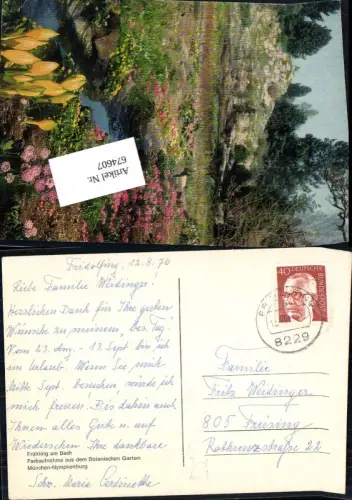 Artikel Nr.
674607
Fridolfing, 12.8.76
Liebe Familie Weidinger!
Herzlichen Dank für Ihre guten
Wünsche zu meinem, bes. Tag!
Vom 23. Aug. - 13. Sept bin ich
im Urlaub. Wenn Sie mich
Mitte Sept. besuchen, würde ich
mich freuen! Bis dahin auch
Ihnen alles Gute u. auf
Wiedersehen Ihre dankbare
Schw. Maria
Frühling am Bach
Farbaufnahme aus dem Botanischen Garten
München-Nymphenburg
40 DEUTSCHE BUNDESPOST
8229
Familie
Fritz Weidinger
805 Freising
Rotkreuzstraße 22